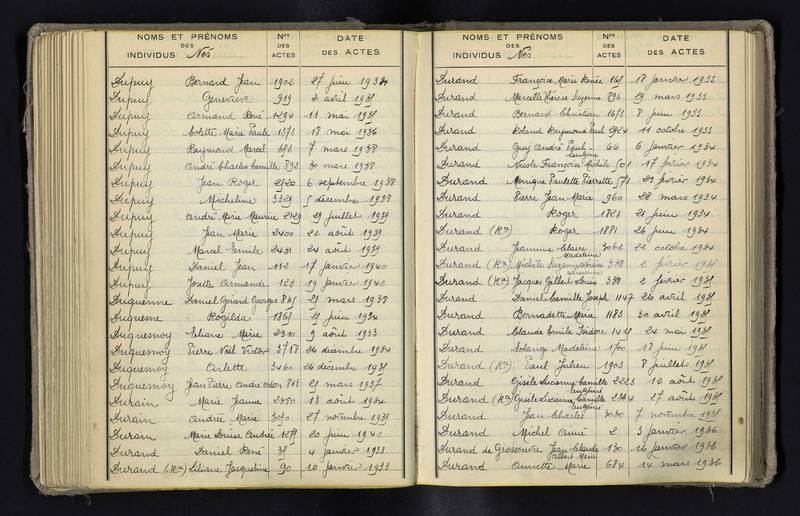 NOMS ET PRÉNOMS DES INDIVIDUS Nés Nos DES ACTES DATE DES ACTES
Dupuy Bernard Jean 1902 27 juin 193
Dupuy Geneviève 919 2 avril 1931
Dupuy Armand René 1294 11 mai 1931
Dupuy Colette Marie Paule 1373 18 mai 1936
Dupuy Raymond Marcel 696 7 mars 1938
Dupuy André Charles Camille 893 30 mars 1938
Dupuy Jean Roger 2520 6 septembre 1938
Dupuy Micheline 3329 5 décembre 1938
Dupuy André Marie Maurice 2129 29 juillet 1939
Dupuy Jean Marie 2400 22 août 1939
Dupuy Marcel Emile 2431 24 août 1939
Dupuy Daniel Jean 112 17 janvier 1940
Dupuy Josette Armande 123 19 janvier 1942
Duquenne Daniel Gérard Georges 841 25 mars 1938
Duquesne Rogilda 1865 25 juin 1934
Duquesnoy Liliane Marie 2310 9 août 1933
Duquesnoy Pierre Noël Victor 3718 26 décembre 1934
Duquesnoy Arlette 3460 26 décembre 1935
Duquesnoy Jean Pierre André Odon 813 25 mars 1937
Durain Marie Jeanne 2380 13 août 1934
Durain Andrée Marie 3090 27 novembre 1939
Durain Marie Louise Andrée 1679 20 juin 1942
Durand Daniel René 35 4 janvier 1933
Durand (Ron) Liliane Jacqueline 90 10 janvier 1933
NOMS ET PRÉNOMS DES INDIVIDUS Nés Nos DES ACTES DATE DES ACTES
Durand Françoise Marie Renée 165 18 janvier 1933
Durand Marcelle Thérèse Suzanne 896 29 mars 1933
Durand Bernard Christian 1673 8 juin 1933
Durand Roland Raymond Paul 2924 11 octobre 1933
Durand Guy André Paul Eugène 66 6 janvier 1934
Durand Nicole Françoise Michèle 501 17 février 1934
Durand Monique Paulette Pierrette 571 23 février 1934
Durand Pierre Jean Marie 960 28 mars 1934
Durand Roger 1823 21 juin 1934
Durand (Ron) Roger 1881 26 juin 1934
Durand Jeannine Claire Madeleine 3062 22 octobre 1934
Durand (Ron) Michèle Suzanne 338 2 février 1935
Durand (Ron) Jacques Gilbert Louis 338 2 février 1935
Durand Daniel Camille Joseph 1147 26 avril 1935
Durand Bernadette Marie 1183 30 avril 1935
Durand Claude Emile Isidore 1424 24 mai 1935
Durand Solange Madeleine 1700 18 juin 1935
Durand (Ron) Paul Julien 1903 8 juillet 1935
Durand Gisèle Lucienne Camille Eugénie 2223 12 août 1935
Durand (Ron) Gisèle Lucienne Camille Eugénie 2364 27 août 1935
Durand Jean Charles 3030 7 novembre 1935
Durand Michel Aimé 2 3 janvier 1936
Durand de Grossouvre Jean Claude Albert Marie 130 16 janvier 1936
Durand Annette Marie 684 14 mars 1936